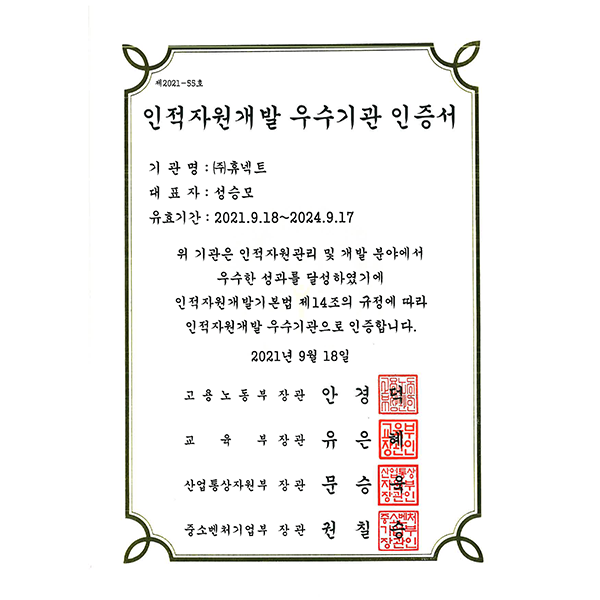 제2021-55호
인적자원개발 우수기관 인증서
기 관 명 : ㈜휴넥트
대 표 자 : 성승모
유효기간 : 2021.9.18~2024.9.17
위 기관은 인적자원관리 및 개발 분야에서
우수한 성과를 달성하였기에
인적자원개발기본법 제14조의 규정에 따라
인적자원개발 우수기관으로 인증합니다.
2021년 9월 18일
고용노동부 장관 안 경 덕
교 육 부 장관 유 은 혜
교육부장관인
산업통상자원부 장관 문 승 욱
산업통상자원부장관인
중소벤처기업부 장관 권 칠 승
중소벤처기업부장관인